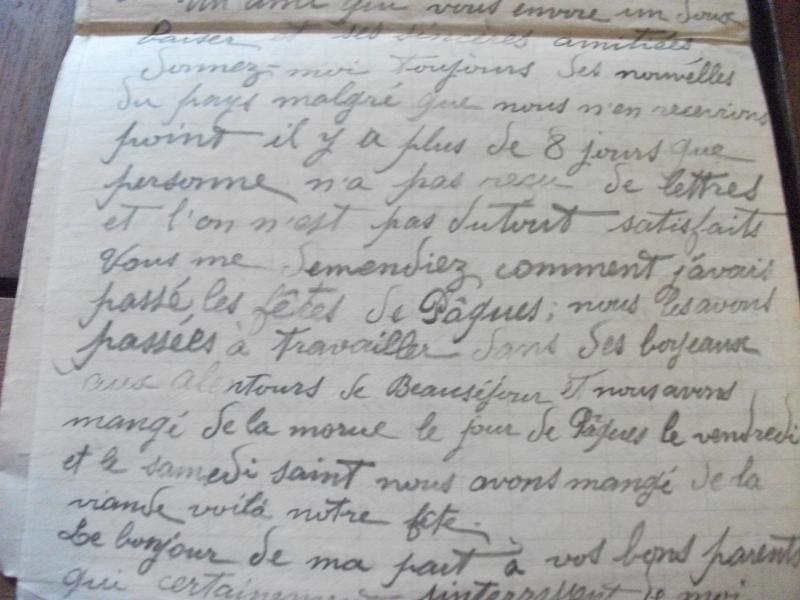 Un ami qui vous envoie un doux
baiser et ses sincères amitiées
donnez-moi toujours des nouvelles
du pays malgré que nous n'en recevions
point il y a plus de 8 jours que
personne n'a pas reçu de lettres
et l'on n'est pas dutout satisfaits
Vous me demendiez comment j'avais
passé les fêtes de Pâques; nous les avons
passées à travailler dans des boyeaux
aux alentours de Beauséjour et nous avons
mangé de la morue le jour de Pâques le vendredi
et le samedi saint nous avons mangé de la
viande voilà notre fête.
Le bonjour de ma part à vos bons parents
qui certainement de moi